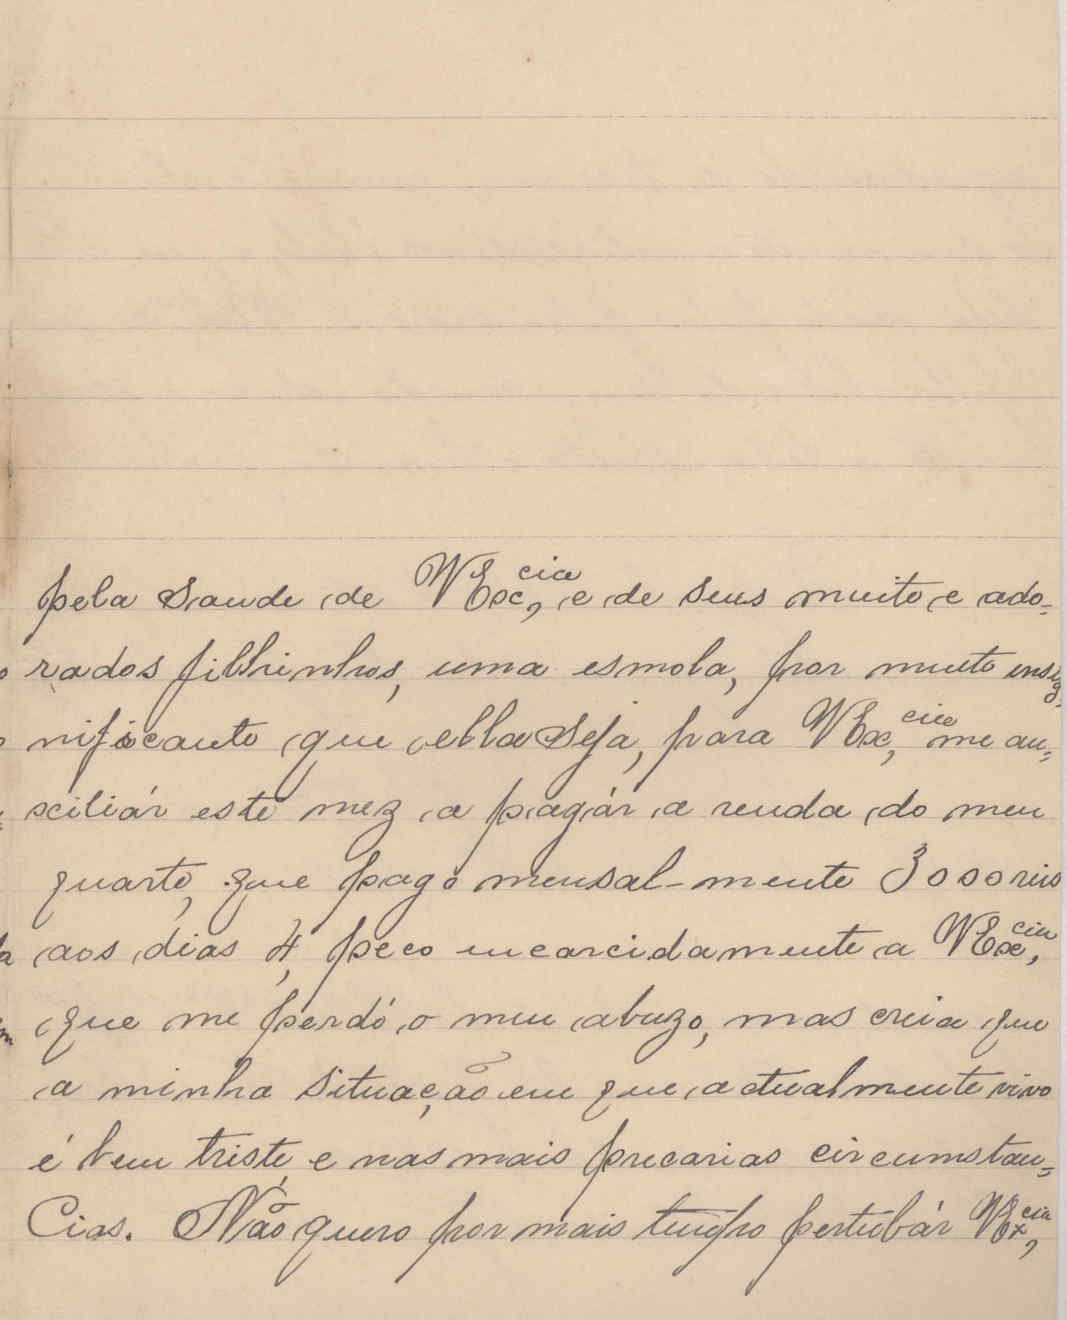 pela saude de VExc,cia e de seus muito e ado=
rados filhinhos, uma esmola, por muito insig=
nificante que ella seja, para VExc,cia me au=
xciliár este mez a pagár a renda do meu
quarto, que pago mensal-mente 3000 reis
aos dias 4, peco encarcidamente a VExc,cia
que me perdó o meu abuzo, mas creia que
a minha situação em que actualmente vivo
é bem triste, e nas mais precarias circumstan=
Cias. Não quero por mais tempo pertubár VEx,cia